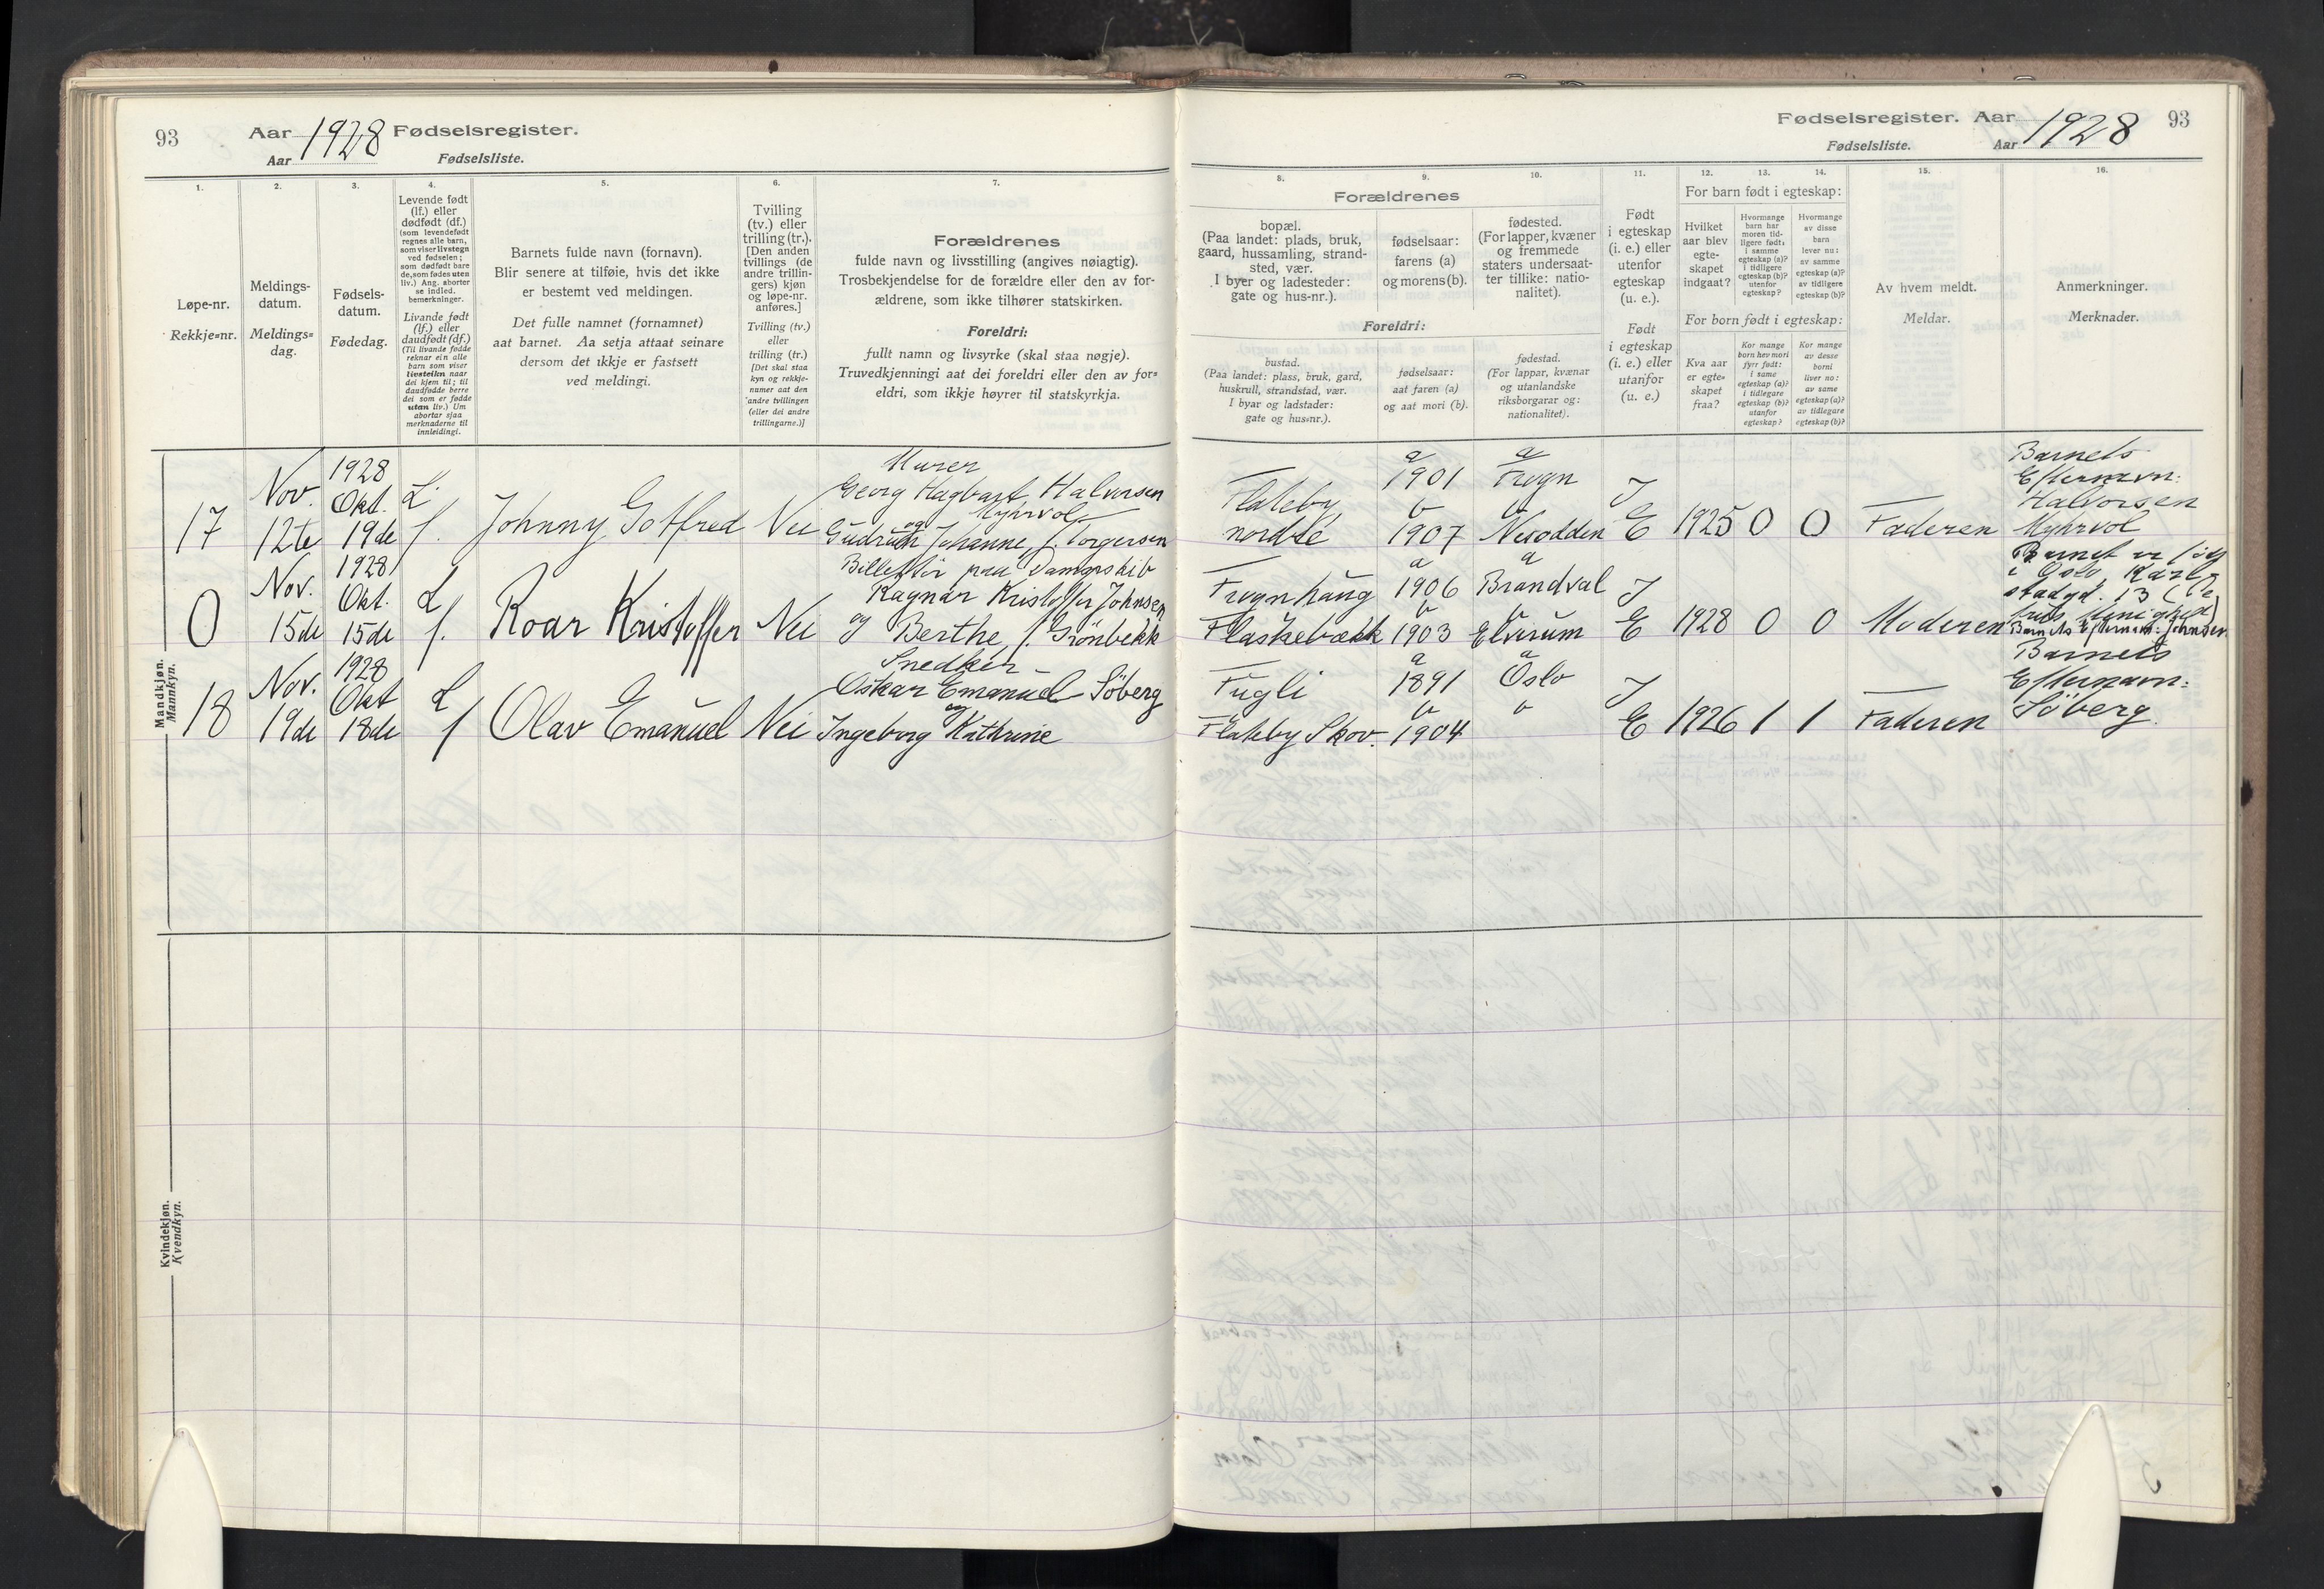 93
Aar 1928 Fødselsregister.
Aar
Fødselsliste.
Fødselsregister. Aar 1928 93
Fødselsliste. Aar
1.
Løpe-nr.
Rekkje=nr.
2.
Meldings-
datum.
Meldings=
dag.
3.
Fødsels-
datum.
Fødedag.
4.
Levende født
(lf.) eller
dødfødt (df.)
(som levendefødt
regnes alle barn,
som viser livstegn
ved fødselen;
som dødfødt bare
de, som fødes uten
liv.) Ang. aborter
se indled.
bemerkninger.
Livande født
(lf.) eller
daudfødt (df.)
(Til livande fødde
reknar ein alle
barn som viser
livsteikn naar
dei kjem til; til
daudfødde berre
dei som er fødde
utan liv.) Um
abortar sjaa
merknaderne til
innleidingi.
5.
Barnets fulde navn (fornavn).
Blir senere at tilføie, hvis det ikke
er bestemt ved meldingen.
Det fulle namnet (fornamnet)
aat barnet. Aa setja attaat seinare
dersom det ikkje er fastsett
ved meldingi.
6.
Tvilling
(tv.) eller
trilling (tr.).
[Den anden
tvillings (de
andre trillin-
gers) kjøn
og løpe-nr.
anføres.]
Tvilling (tv.)
eller
trilling (tr.)
[Det skal staa
kyn og rekkje-
numer aat den
andre tvillingen
(eller dei andre
trillingarne.)]
7.
Forældrenes
fulde navn og livsstilling (angives nøiagtig).
Trosbekjendelse for de forældre eller den av for-
ældrene, som ikke tilhører statskirken.
Foreldri:
fullt namn og livsyrke (skal staa nøgje).
Truvedkjenningi aat dei foreldri eller den av for=
eldri, som ikkje høyrer til statskyrkja.
Forældrenes
8.
bopæl.
(Paa landet: plads, bruk,
gaard, hussamling, strand-
sted, vær.
I byer og ladesteder:
gate og hus-nr.).
9.
fødselsaar:
farens (a)
og morens (b).
10.
fødested.
(For lapper, kvæner
og fremmede
staters undersaat-
ter tillike: natio-
nalitet).
Foreldri:
bustad.
(Paa landet: plass, bruk, gard,
huskrull, strandstad, vær.
I byar og ladstader:
gate og hus=nr.).
fødselsaar:
aat faren (a)
og aat mori (b).
fødestad.
(For lappar, kvænar
og utanlandske
riksborgarar og:
nationalitet).
11.
Født
i egteskap
(i. e.) eller
utenfor
egteskap
(u. e.).
Født
i egteskap
(i. e.) eller
utanfor
egteskap
(u. e.)
12. 13. 14.
For barn født i egteskap:
Hvilket
aar blev
egte-
skapet
indgaat?
Hvormange
barn har
moren tid-
ligere født:
i samme
egteskap (a)?
i tidligere
egteskap (b)?
utenfor
egteskap?
Hvormange
av disse
barn
lever nu:
av samme
egteskap (a)?
av tidligere
egteskap (b)?
For born født i egteskap:
Kva aar
er egte=
skapet
fraa?
Kor mange
born hev mori
fyrr født:
i same
egteskap (a)?
i tidlegare
egteskap (b)?
utanfor
egteskap?
Kor mange
av desse
borni
liver no:
av same
egteskap (a)?
av tidlegare
egteskap (b)?
15.
Av hvem meldt.
Meldar.
16.
Anmerkninger.
Merknader.
Mandkjøn.
Mannkyn.
17
Nov.
12te
1928
Okt.
19de
L.
f.
Johnny Gotfred
Nei
Murer
Georg Hagbart Halvorsen
Myhrvol
og
Gudrun Johanne, f. Torgersen
Flateby
nordre
a
1901
b
1907
a
Frogn
b
Nesodden
I
E
1925
0
0
Faderen
Barnets
Efternavn:
Halvorsen
Myhrvol
0
Nov.
15de
1928
Okt.
15de
L
f.
Roar Kristoffer
Nei
Billettör paa Dampskib
Ragnar Kristoffer Johnsen
og Berthe, f. Grönbekk
Frognhaug
Flaskebækk
a
1906
b
1903
a
Brandval
b
Elverum
I
E
1928
0
0
Moderen
Barnet er föd
i Oslo, Karl-
stadgd. 13
Barnets Efternavn: Johnsen
18
Nov.
19de
1928
Okt
18de
L
f
Olav Emanuel
Nei
Snedker
Oskar Emanuel Söberg
og
Ingeborg Kathrine
Fugli
Flateby Skov.
a
1891
b
1904
a
Oslo
b
I
E
1926
1
1
Faderen
Barnets
Efternavn:
Söberg.
Kvindekjøn.
Kvendkyn.